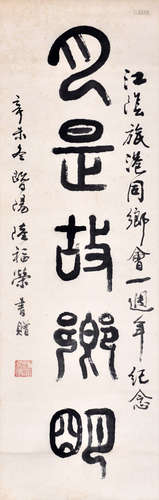 江陰旅港同鄉會一週年紀念
月是故鄉明
辛未冬暨陽陸征榮書贈